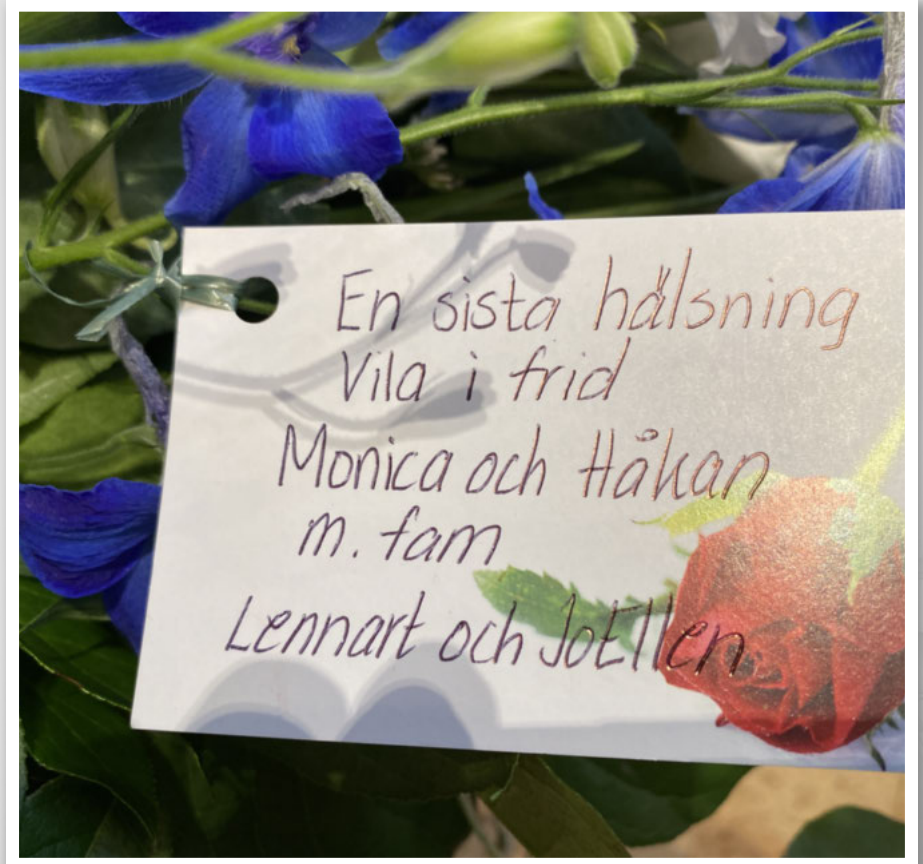 En sista hälsning
Vila i frid
Monica och Håkan
m. fam
Lennart och JoEllen